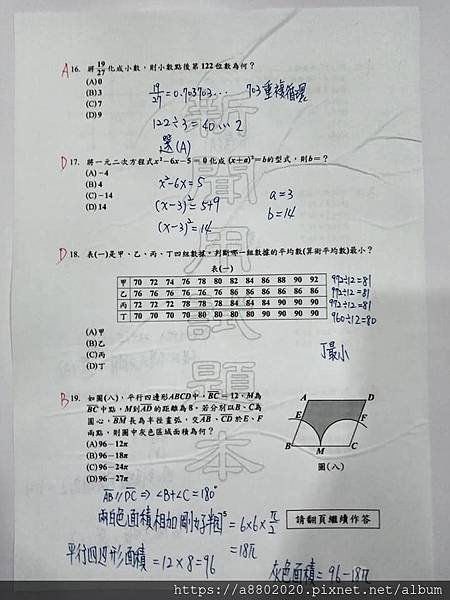 A 16. 將19/27化成小數，則小數點後第122位數為何？
(A) 0
(B) 3
(C) 7
(D) 9
19/27 = 0.703703… 703重複循環
122÷3 = 40 … 2
選(A)
D 17. 將一元二次方程式x²-6x-5=0化成(x+a)²=b的型式，則b=？
(A) -4
(B) 4
(C) -14
(D) 14
x²-6x=5
(x-3)²=5+9
(x-3)²=14
a=3
b=14
D 18. 表(一)是甲、乙、丙、丁四組數據，判斷哪一組數據的平均數(算術平均數)最小？
表(一)
甲 70 72 74 76 78 80 82 84 86 88 90 92 972÷12=81
乙 76 76 76 76 76 76 86 86 86 86 86 86 972÷12=81
丙 72 72 72 78 78 78 84 84 84 90 90 90 972÷12=81
丁 70 70 70 70 80 80 80 80 90 90 90 90 960÷12=80
(A) 甲
(B) 乙
(C) 丙
(D) 丁
丁最小
B 19. 如圖(八)，平行四邊形ABCD中，BC=12，M為
BC中點，M到AD的距離為8。若分別以B、C為
圓心，BM長為半徑畫弧，交AB、CD於E、F
兩點，則圖中灰色區域面積為何？
(A) 96-12π
(B) 96-18π
(C) 96-24π
(D) 96-27π
A D
E F
B M C
圖(八)
AB//DC ⇒ ∠B+∠C=180°
兩白色面積相加剛好半圓 = 6×6×π/2
= 18π
平行四边形面積 = 12×8=96
灰色面積 = 96-18π
請翻頁繼續作答
新聞用試題本
5
https://a8802020.pixnet.net/album